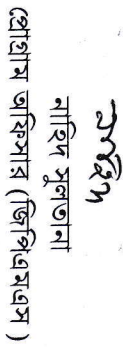 নাহিদ সুলতানা
প্রোগ্রাম অফিসার (জিপিএমএস)